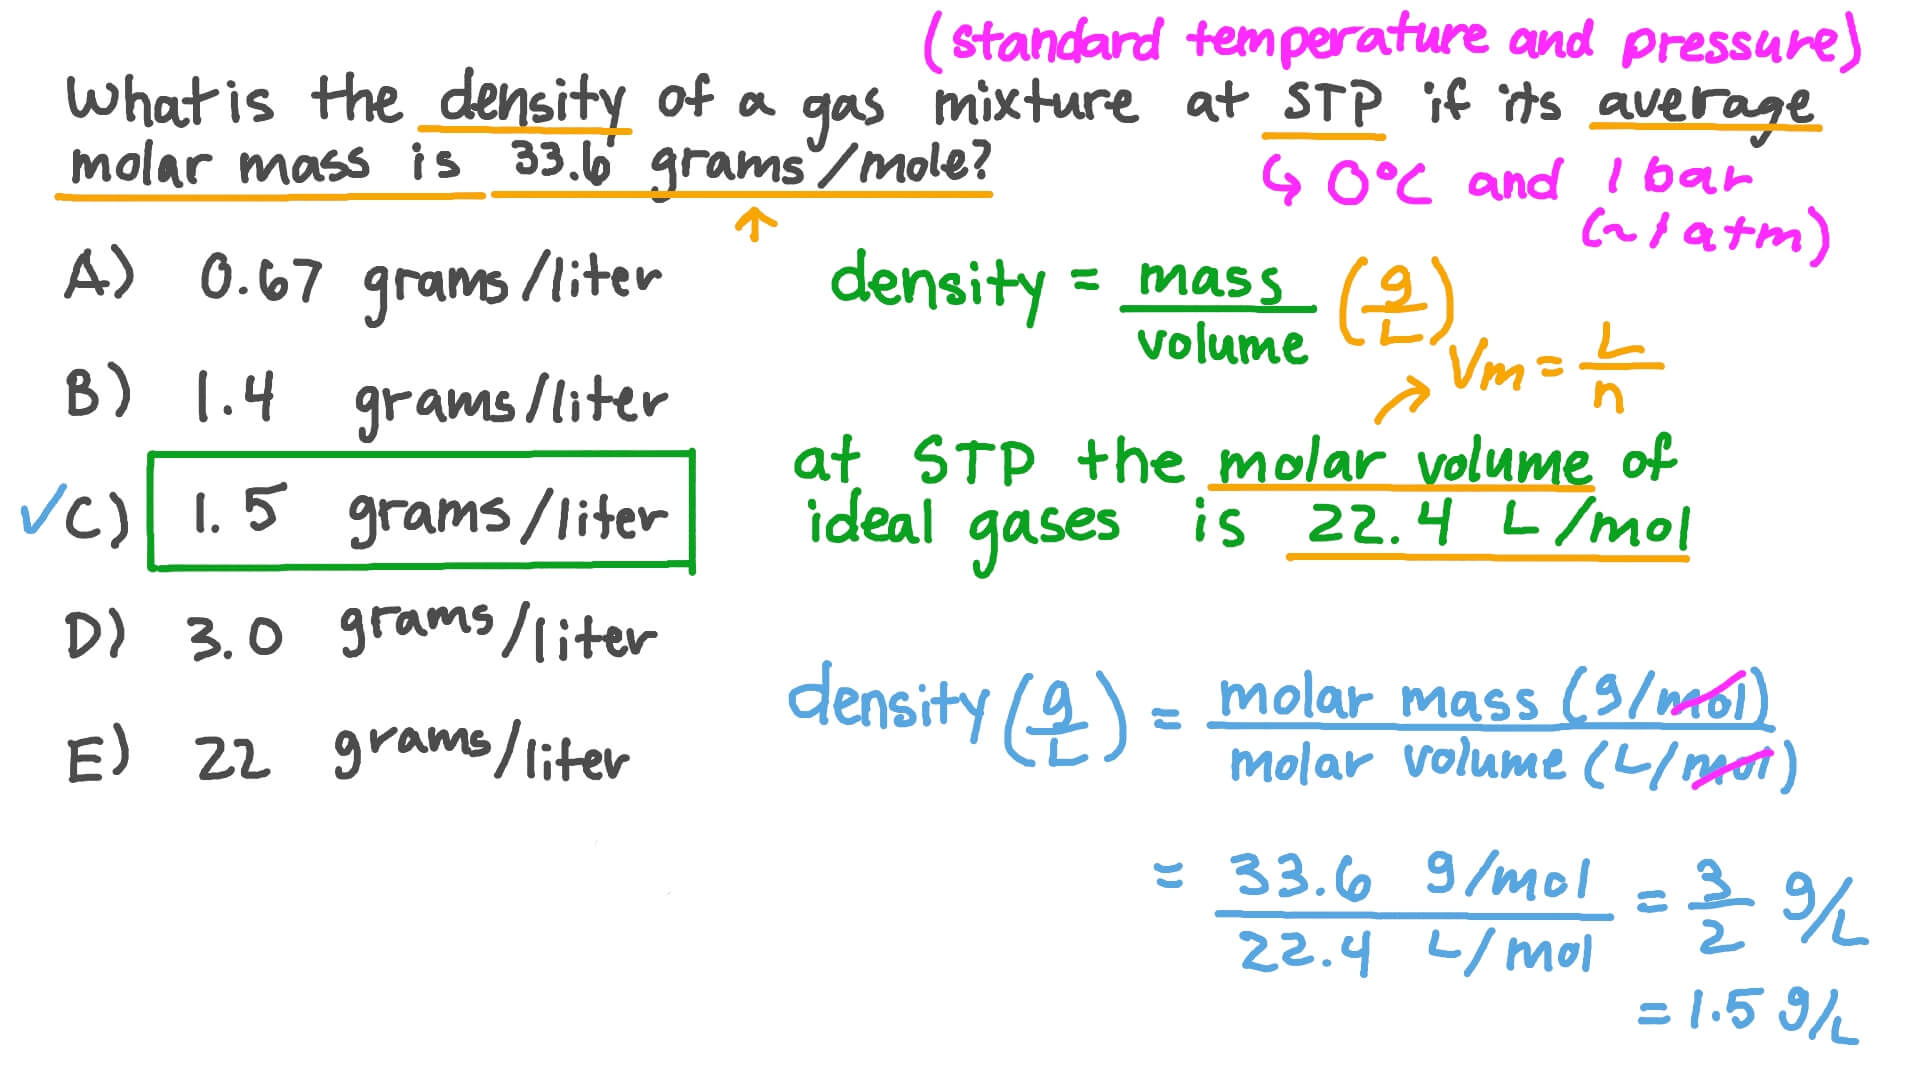 (standard temperature and pressure)
What is the density of a gas mixture at STP if its average
molar mass is 33.6 grams/mole?
↳ 0°C and 1 bar
(~1 atm)
A) 0.67 grams/liter
B) 1.4 grams/liter
✓C) 1.5 grams/liter
D) 3.0 grams/liter
E) 22 grams/liter
density = mass/volume (g/L)
Vm = L/n
at STP the molar volume of
ideal gases is 22.4 L/mol
density (g/L) = molar mass (g/mol)/molar volume (L/mol)
= 33.6 g/mol/22.4 L/mol = 3/2 g/L
= 1.5 g/L